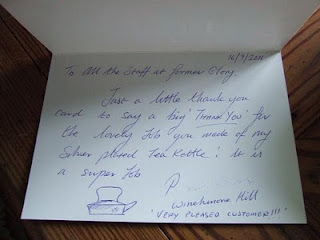 16/9/2011
To All the Staff at Former Glory.
Just a little thank you
card to say a big 'THANK YOU' for
the lovely Job you made of my
Silver plated Tea Kettle! It is
a super Job
P
Winchmore Hill
'VERY PLEASED CUSTOMER!!!'